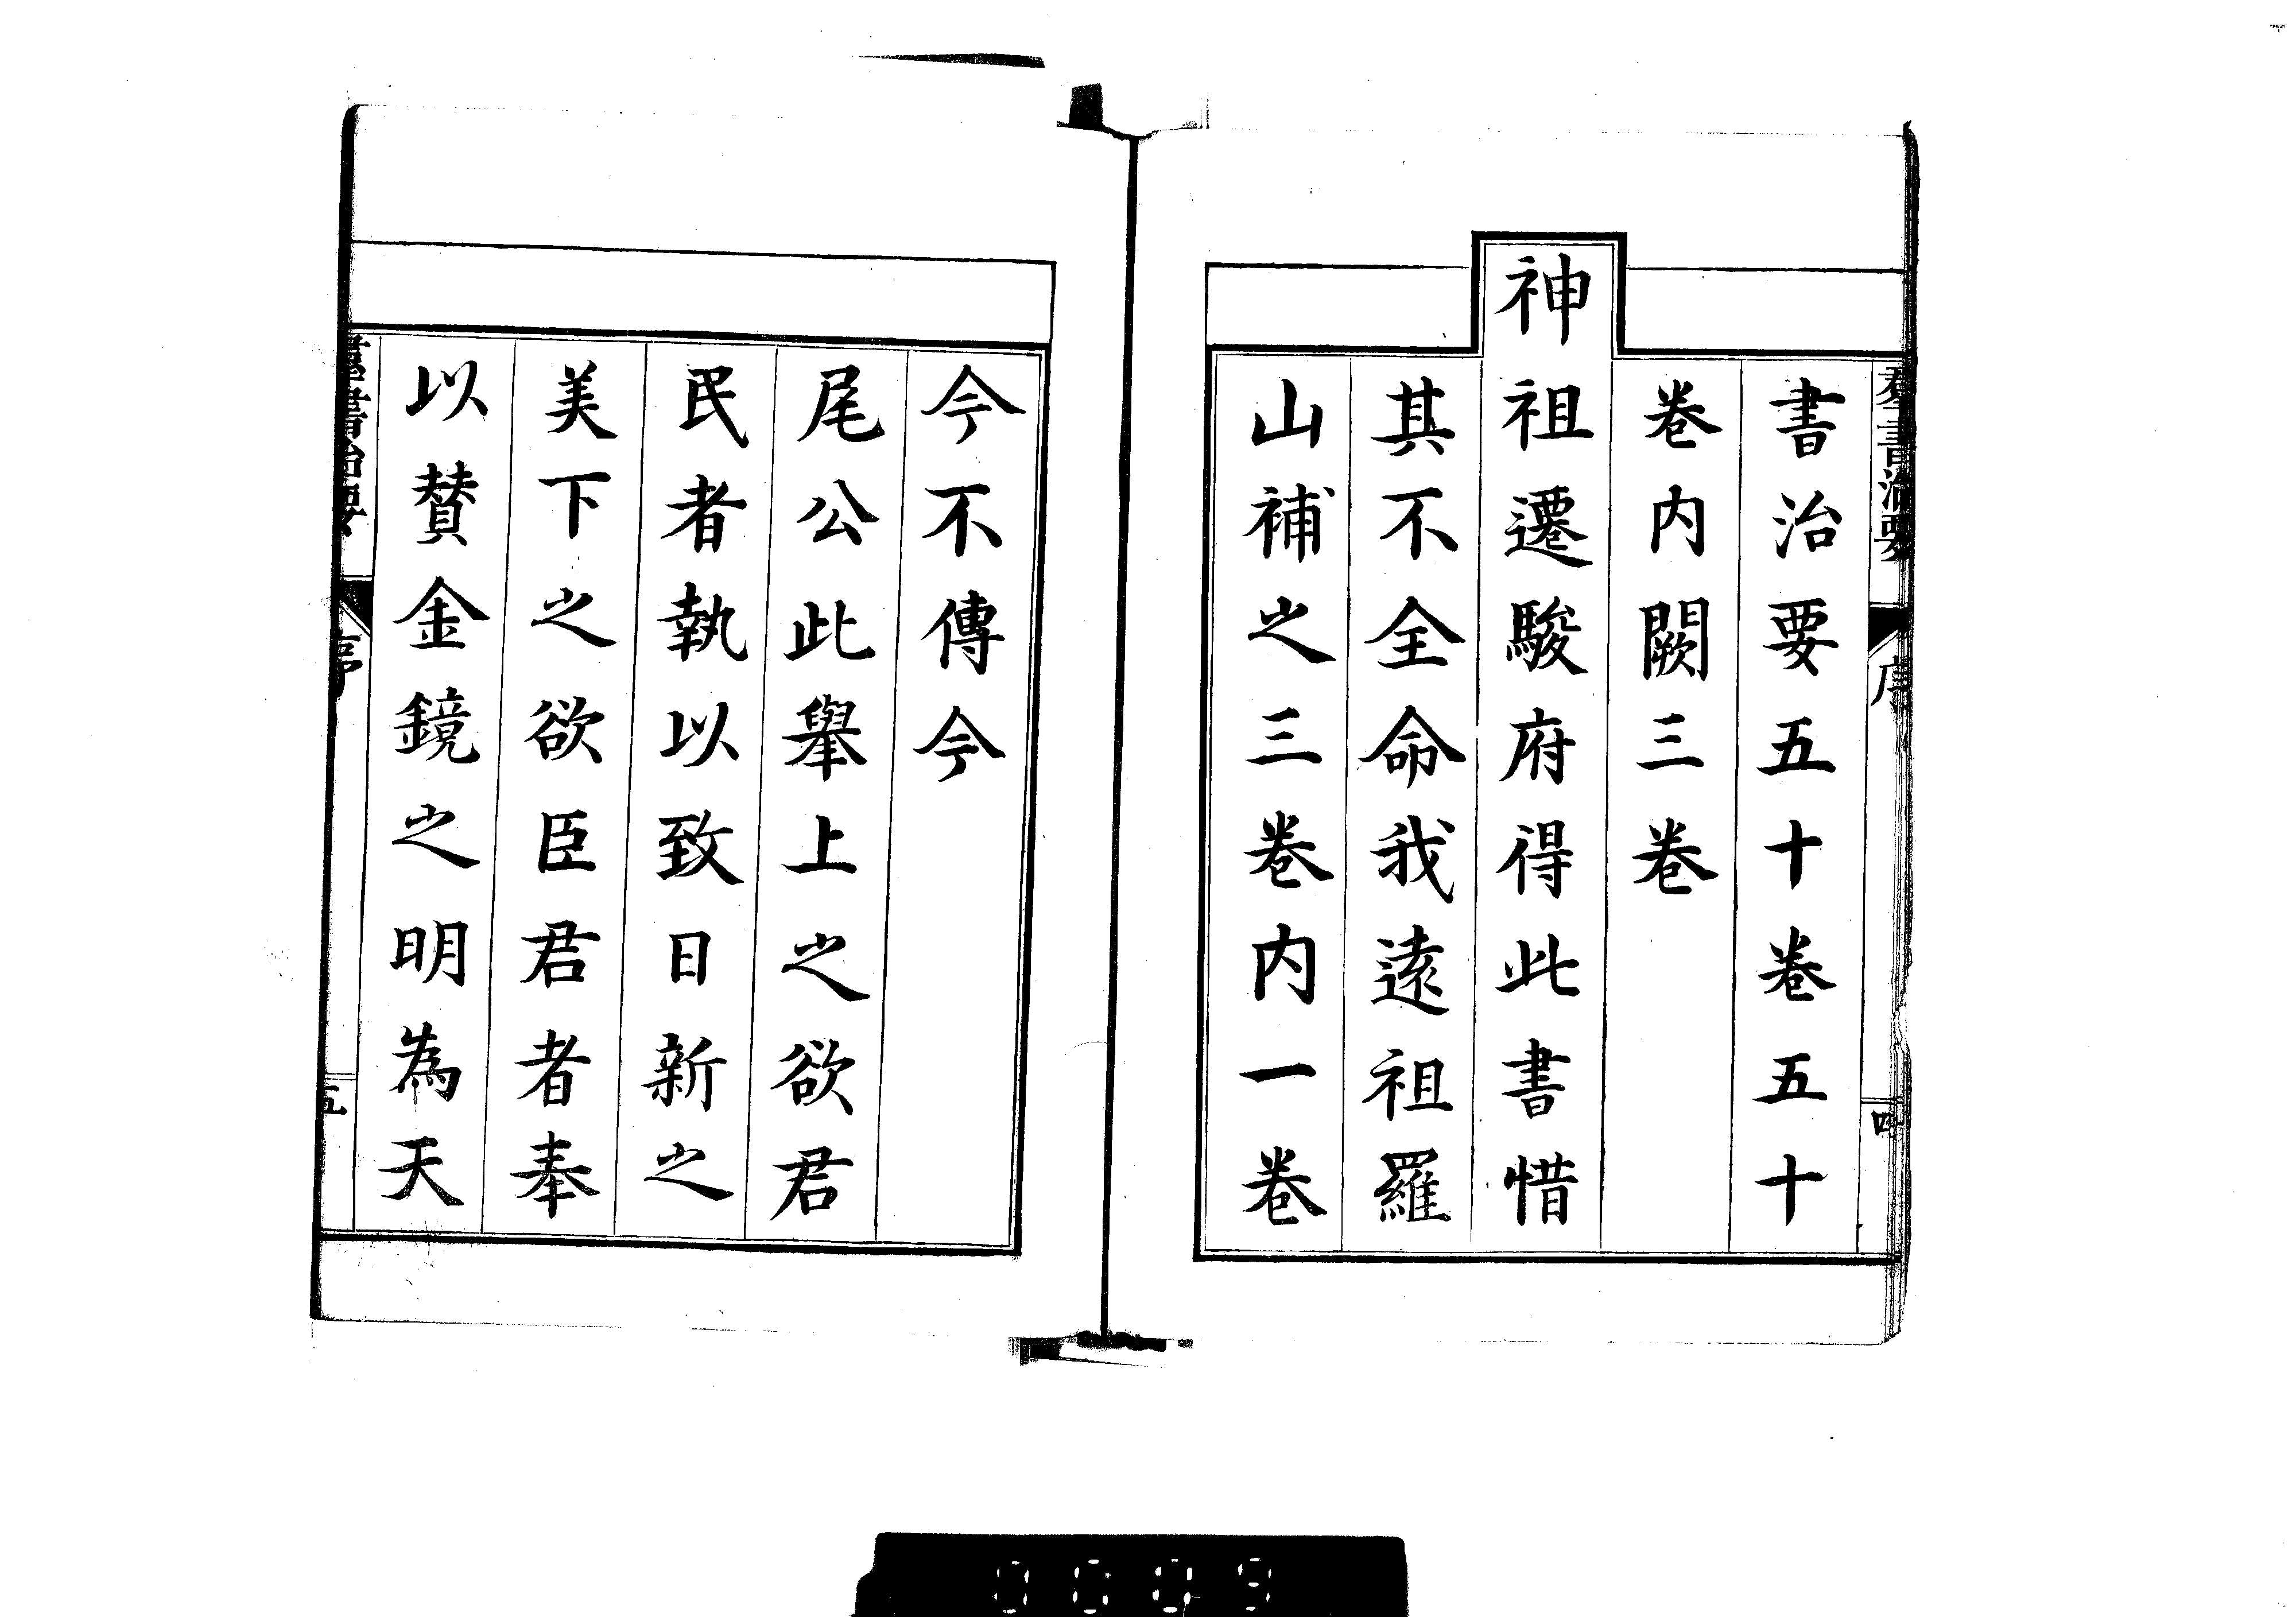 群書治要
序
四
書治要五十卷五十
卷内闕三卷
神祖遷駿府得此書惜
其不全命我遠祖羅
山補之三卷内一卷
今不傳今
尾公此舉上之欲君
民者執以致日新之
美下之欲臣君者奉
以賛金鏡之明為天
群書治要
序
五